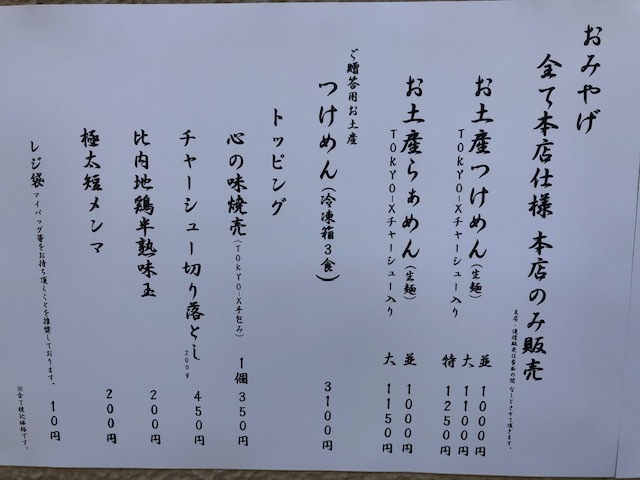 おみやげ
全て本店仕様 本店のみ販売
支店・通信販売は当面の間なしとさせて頂きます。
お土産つけめん(生麺)
TOKYO-Xチャーシュー入り
並 1000円
大 1100円
特 1250円
お土産らぁめん(生麺)
TOKYO-Xチャーシュー入り
並 1000円
大 1150円
ご贈答用お土産
つけめん(冷凍箱3食) 3100円
トッピング
心の味焼売(TOKYO-X手包み) 1個 350円
チャーシュー切り落とし 200g 450円
比内地鶏半熟味玉 200円
極太短メンマ 200円
レジ袋 マイバッグ等をお持ち頂くことを推奨しております。 10円
※全て税込価格です。